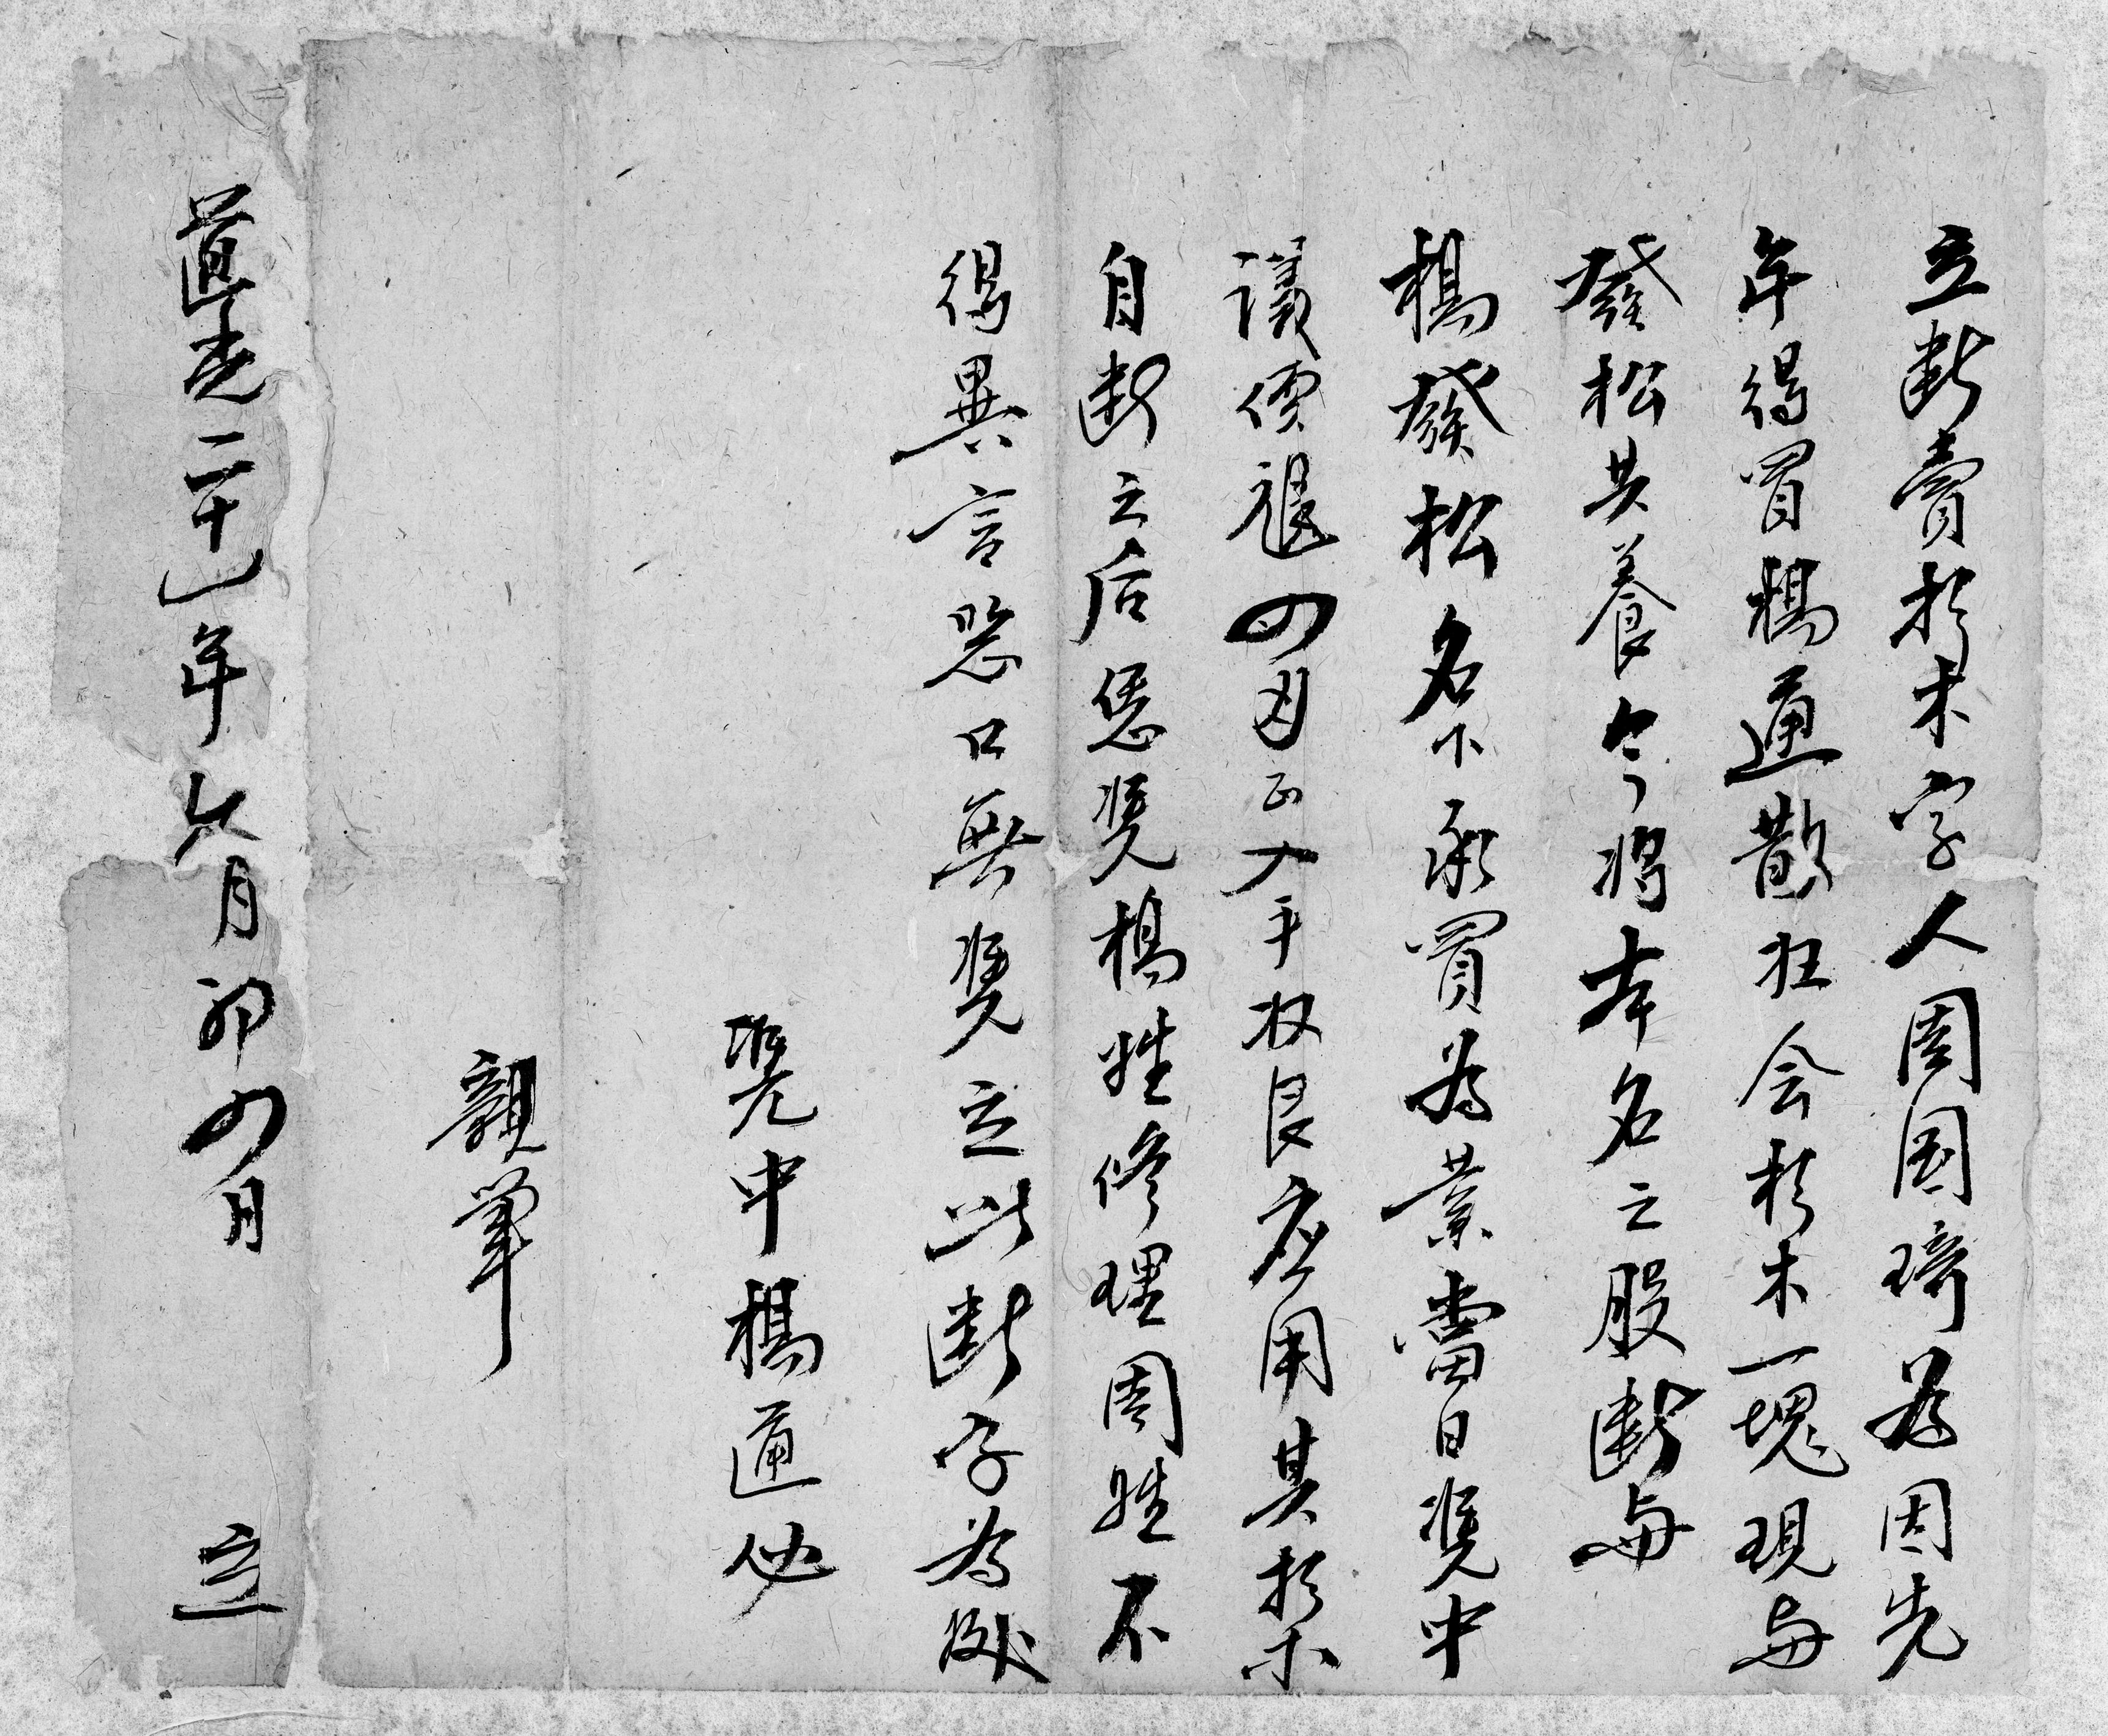 立断賣杉木字人周国琦為因先
年得買楊通散在会杉木一塊現与
發松共養今将本名之股断与
楊發松名下承買為業當日凭中
議價銀四両正入手收良应用其杉木
自断之后恁凭楊姓修理周姓不
得異言恐口無凭立此断字為据
凭中楊通
親筆
道光二十一年六月初四日 立